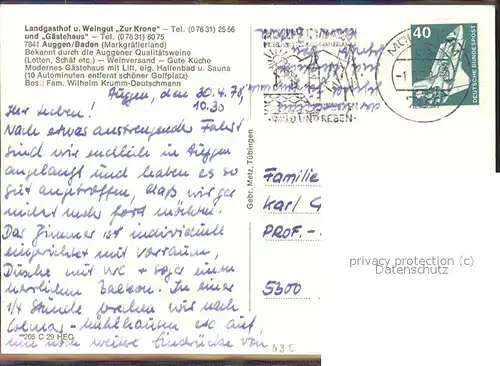 Landgasthof u. Weingut „Zur Krone" – Tel. (07631) 2556
und „Gästehaus" – Tel. (07631) 6075
7841 Auggen/Baden (Markgräflerland)
Bekannt durch die Auggener Qualitätsweine
(Letten, Schäf etc.) – Weinversand – Gute Küche
Modernes Gästehaus mit Lift, eig. Hallenbad u. Sauna
(10 Autominuten entfernt schöner Golfplatz)
Bes.: Fam. Wilhelm Krumm-Deutschmann
Auggen, den 30.4.78,
10.30
Ihr Lieben!
Nach etwas anstrengender Fahrt
sind wir endlich in Auggen
angelangt und haben es so
gut angetroffen, daß wir gar
nicht mehr fort möchten.
Das Zimmer ist individuell
eingerichtet mit Vorraum,
Dusche mit WC + sogar einen
herrlichen Balkon. In einer
1/4 Stunde brechen wir nach
Colmar - Mühlhausen etc auf,
um noch weitere Eindrücke von
205 C 29 HEC
Gebr. Metz, Tübingen
WALD UND REBEN
40
DEUTSCHE BUNDESPOST
Familie
Karl G
PROF.-
5300
privacy protection (c)
Datenschutz